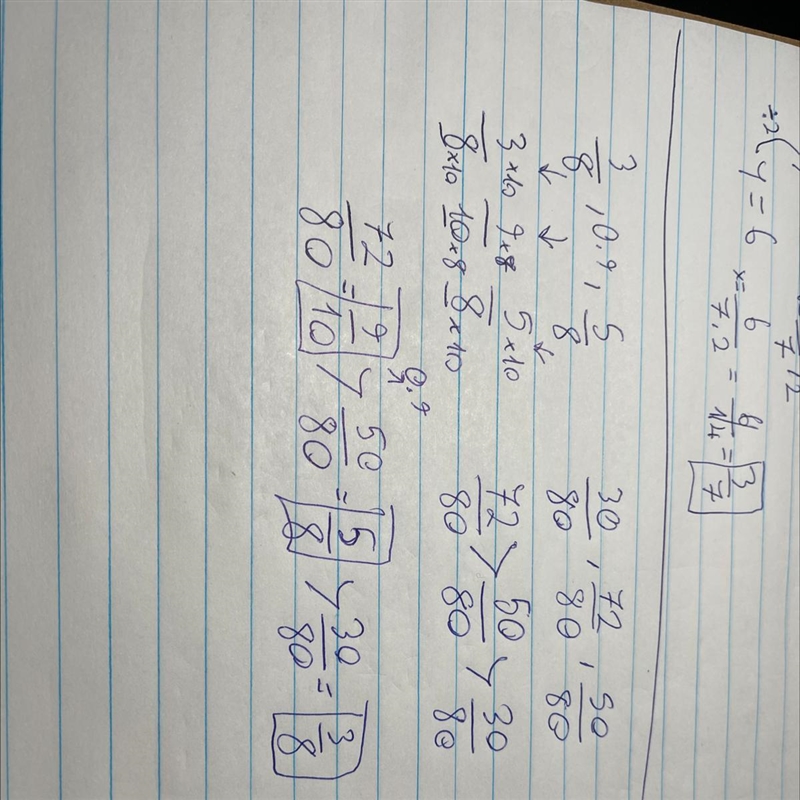 12
7
÷2( y = 6
x = 6/7.2 = 6/14 = 3/7
3/8 , 0.9 , 5/8
↓ ↓ ↓
3×10/8×10 9×8/10×8 5×10/8×10
30/80 , 72/80 , 50/80
72/80 > 50/80 > 30/80
0.9
72/80 = 9/10 > 50/80 = 5/8 > 30/80 = 3/8